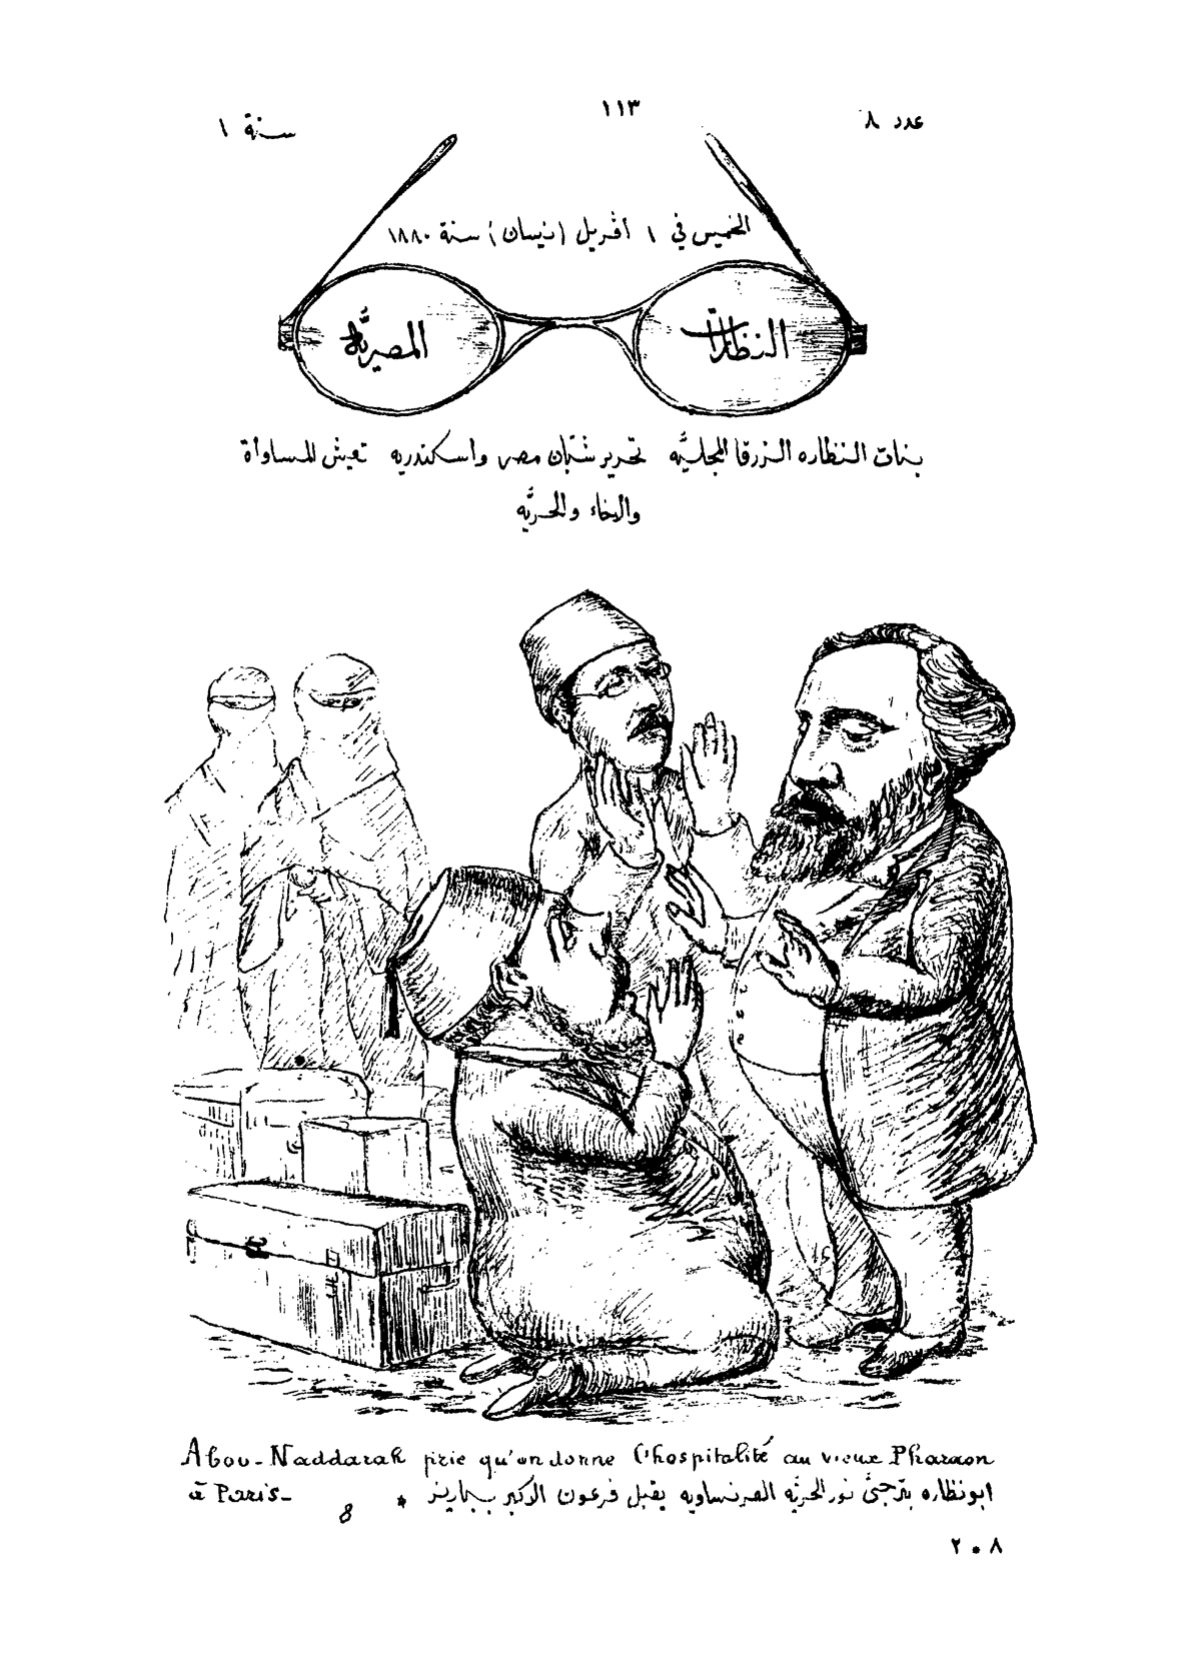 ١١٣
عدد ٨
سنة ١
الخميس في ١ أڤريل (نيسان) سنة ١٨٨٠
النظارات
المصريَّة
بنات النظاره الزرقا المجليَّه تحرير شبَّان مصر واسكندريه تعيش المساواة
والاخاء والحريَّه
Abou-Naddarah prie qu'on donne l'hospitalité au vieux Pharaon
à Paris_
ابو نظاره يترجَّى نور الحريَّه الفرنساويه يقبل فرعون الاكبر بباريز *
8
٢٠٨